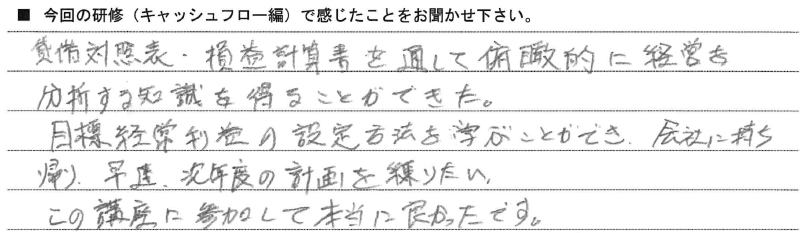 ■ 今回の研修（キャッシュフロー編）で感じたことをお聞かせ下さい。
貸借対照表・損益計算書を通して俯瞰的に経営を
分析する知識を得ることができた。
目標経常利益の設定方法を学ぶことができ、会社に持ち
帰り、早速、次年度の計画を練りたい。
この講座に参加して本当に良かったです。